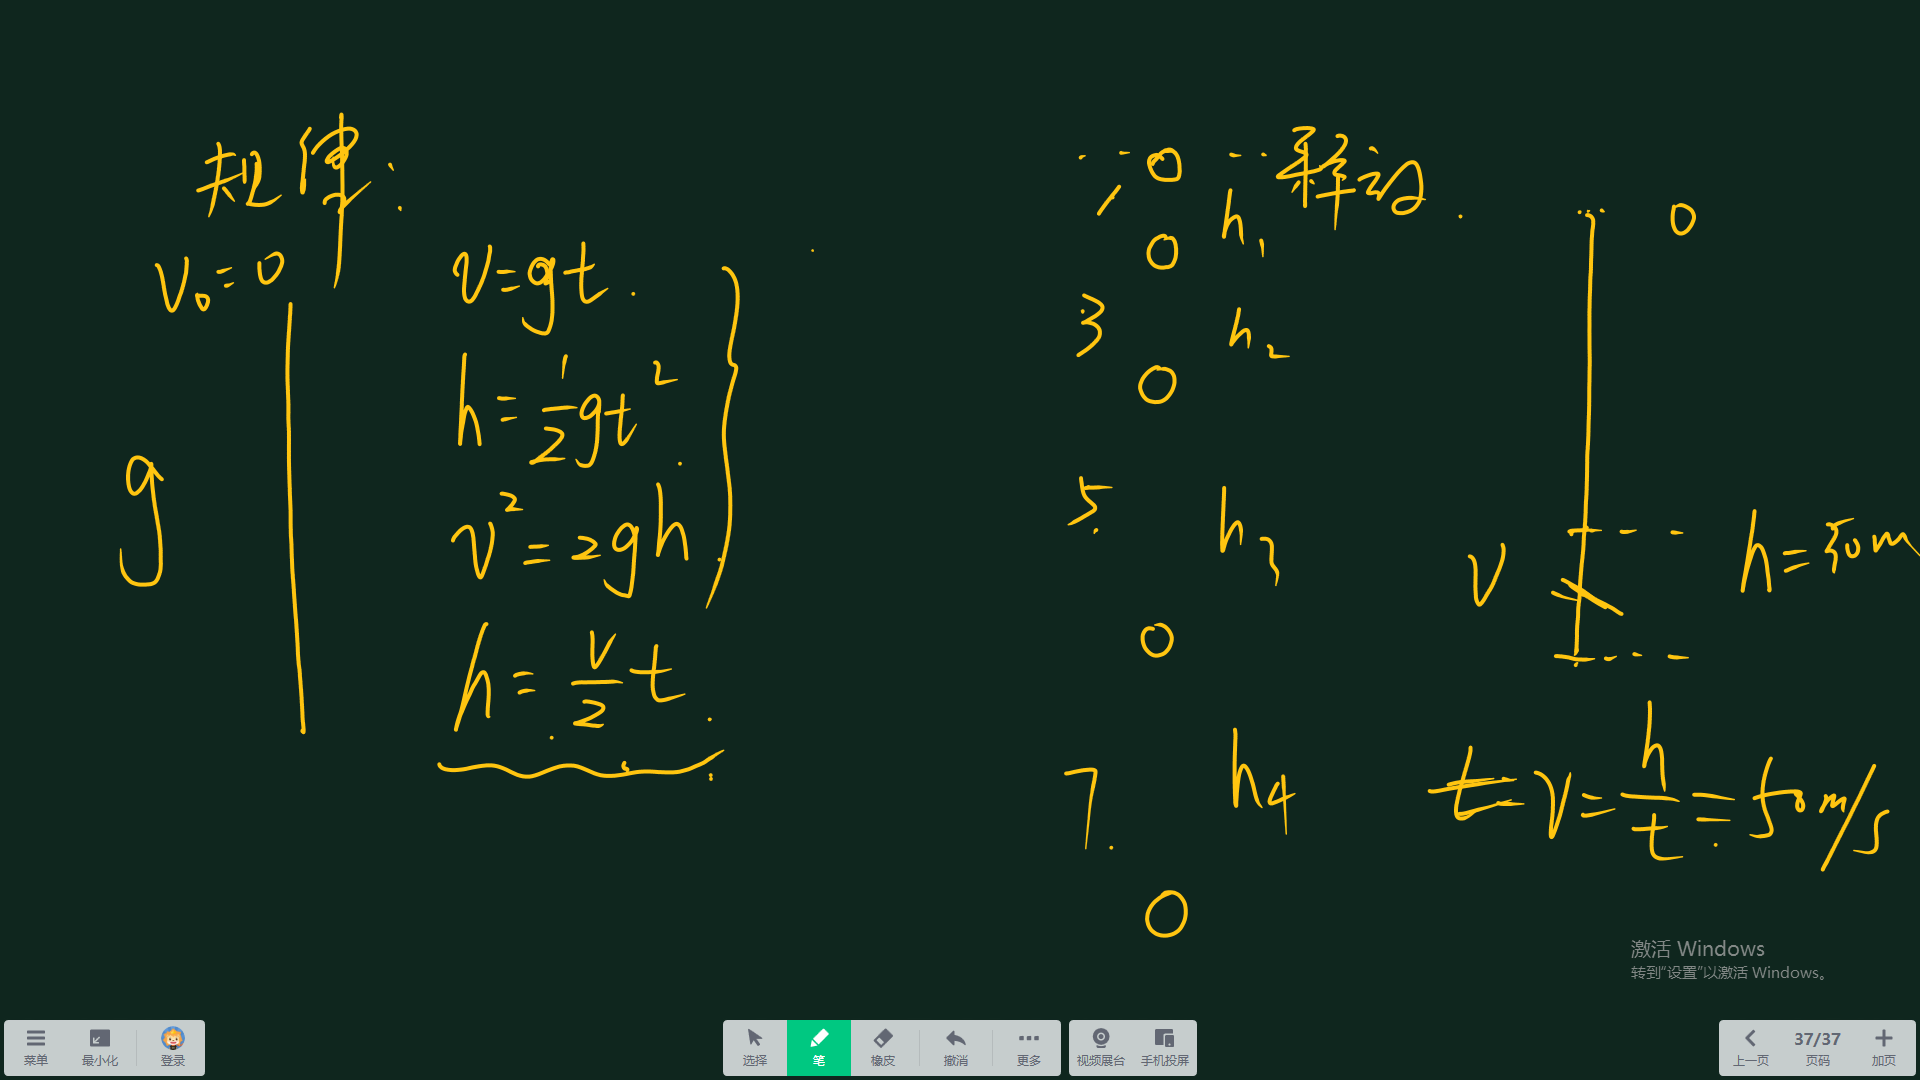 规律:
v₀=0
g
v=gt.
h=1/2 gt²
v²=2gh
h=v/2 t.
释放.
1
h₁
3
h₂
5.
h₃
7.
h₄
v
h=50m
t= v=h/t=50m/s
激活 Windows
转到“设置”以激活 Windows。
菜单
最小化
登录
选择
笔
橡皮
撤消
更多
视频展台
手机投屏
上一页
37/37
页码
加页